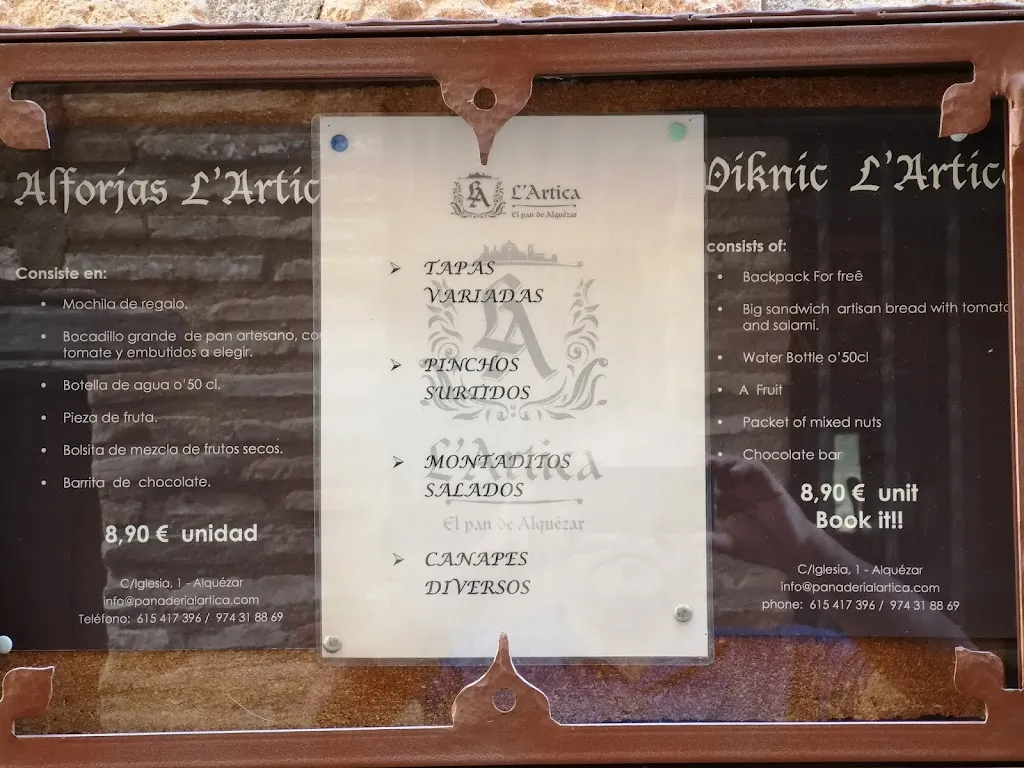 Alforjas L'Artic
Consiste en:
• Mochila de regalo.
• Bocadillo grande de pan artesano, co
tomate y embutidos a elegir.
• Botella de agua o'50 cl.
• Pieza de fruta.
• Bolsita de mezcla de frutos secos.
• Barrita de chocolate.
8,90 € unidad
C/Iglesia, 1 - Alquézar
info@panaderialartica.com
Teléfono: 615 417 396 / 974 31 88 69
L'Artica
El pan de Alquézar
➢ TAPAS
VARIADAS
➢ PINCHOS
SURTIDOS
➢ MONTADITOS
SALADOS
➢ CANAPES
DIVERSOS
L'Artica
El pan de Alquézar
Piknic L'Artic
consists of:
• Backpack For freê
• Big sandwich artisan bread with tomato
and salami.
• Water Bottle o'50cl
• A Fruit
• Packet of mixed nuts
• Chocolate bar
8,90 € unit
Book it!!
C/Iglesia, 1 - Alquézar
info@panaderialartica.com
phone: 615 417 396 / 974 31 88 69